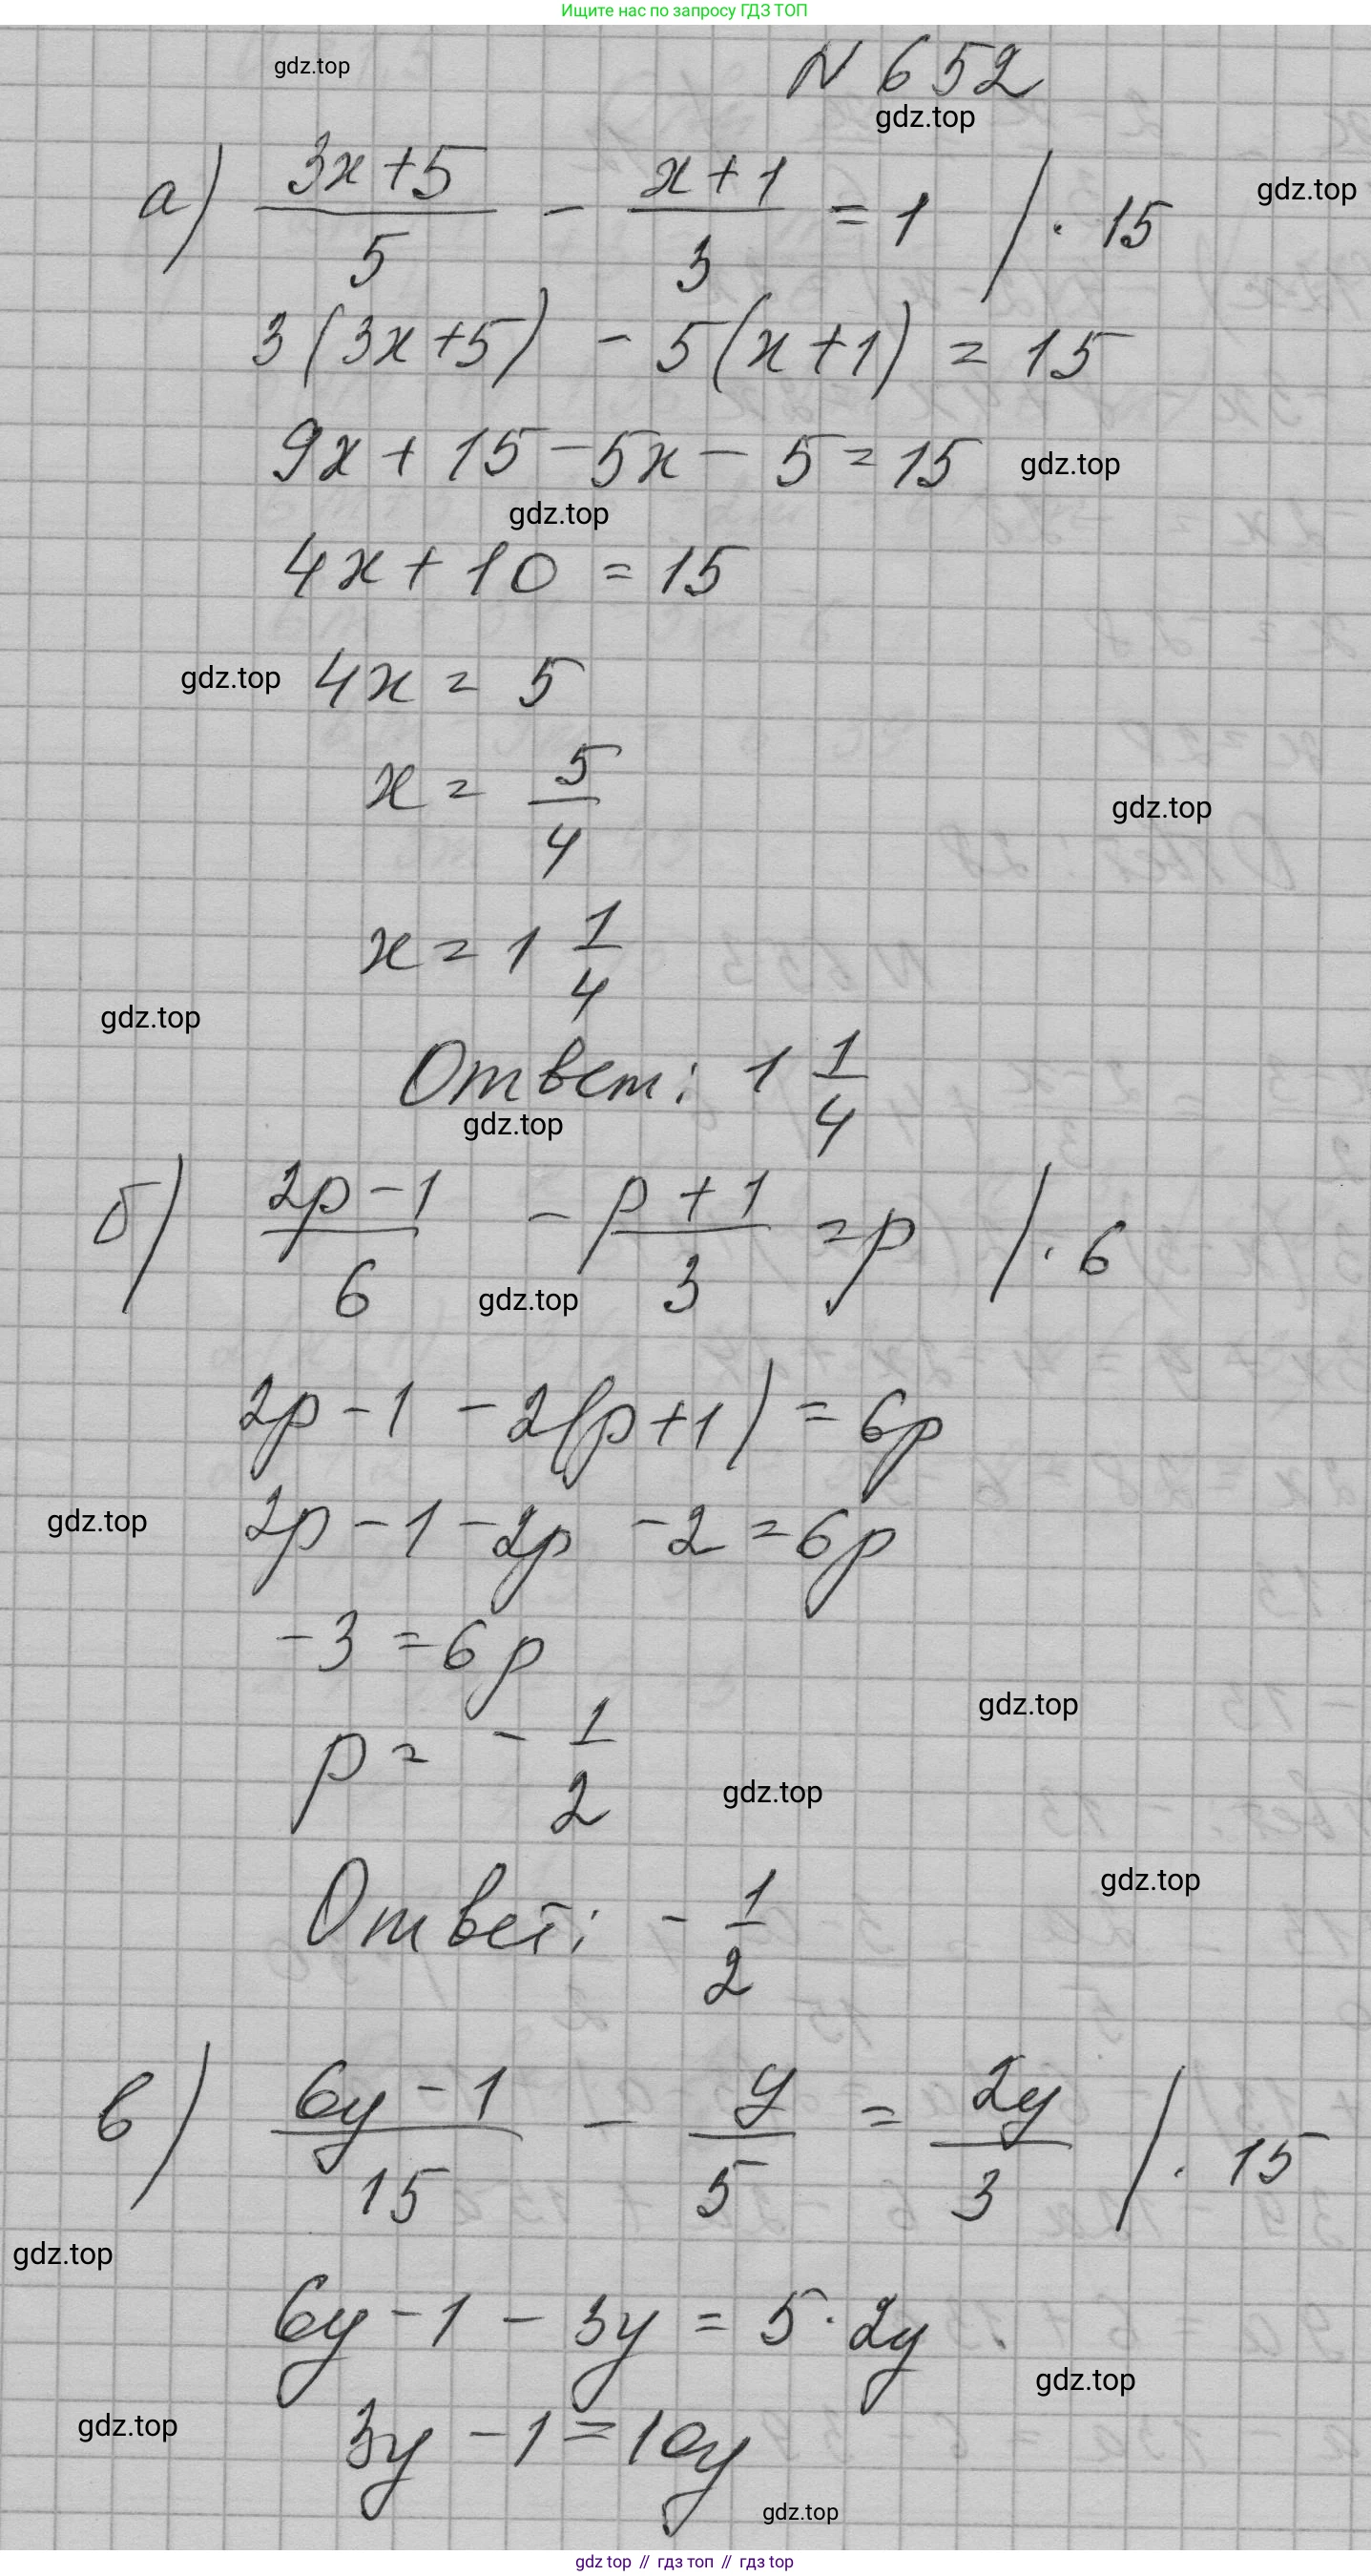 Ищите нас по запросу ГДЗ ТОП
gdz.top
N 652
gdz.top
а) (3x+5)/5 - (x+1)/3 = 1 / · 15
gdz.top
3(3x+5) - 5(x+1) = 15
9x + 15 - 5x - 5 = 15
gdz.top
gdz.top
4x + 10 = 15
gdz.top
4x = 5
x = 5/4
gdz.top
x = 1 1/4
gdz.top
Ответ: 1 1/4
gdz.top
б) (2p-1)/6 - (p+1)/3 = p / · 6
gdz.top
2p - 1 - 2(p+1) = 6p
gdz.top
2p - 1 - 2p - 2 = 6p
-3 = 6p
gdz.top
p = - 1/2
gdz.top
gdz.top
Ответ: - 1/2
в) (6y-1)/15 - y/5 = 2y/3 / · 15
gdz.top
6y - 1 - 3y = 5 · 2y
gdz.top
gdz.top
3y - 1 = 10y
gdz.top
gdz top // гдз топ // гдз top